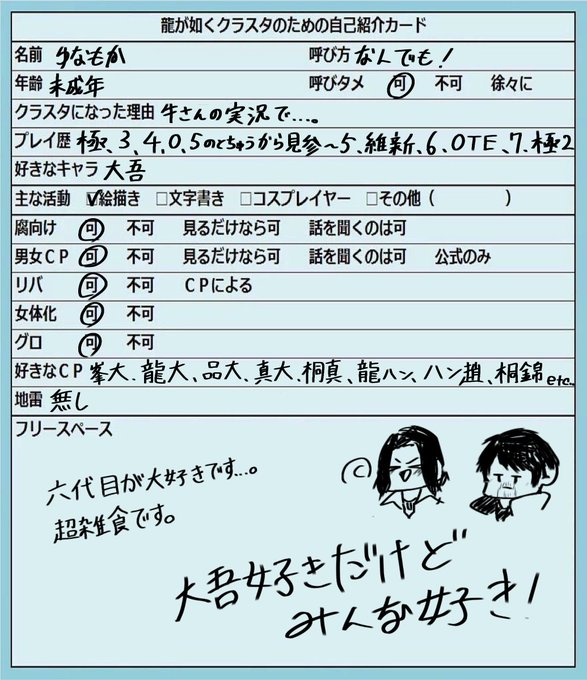 龍が如くクラスタのための自己紹介カード
名前 ゆなもか 呼び方 なんでも!
年齢 未成年 呼びタメ 可 不可 徐々に
クラスタになった理由 牛さんの実況で…。
プレイ歴 極、3、4、0、5のとちゅうから見参～5、維新、6、OTE、7、極2
好きなキャラ 大吾
主な活動 ☑絵描き □文字書き □コスプレイヤー □その他( )
腐向け 可 不可 見るだけなら可 話を聞くのは可
男女CP 可 不可 見るだけなら可 話を聞くのは可 公式のみ
リバ 可 不可 CPによる
女体化 可 不可
グロ 可 不可
好きなCP 峯大、龍大、品大、真大、桐真、龍ハン、ハン趙、桐錦etc...
地雷 無し
フリースペース
六代目が大好きです…。
超雑食です。
大吾好きだけど
みんな好き!